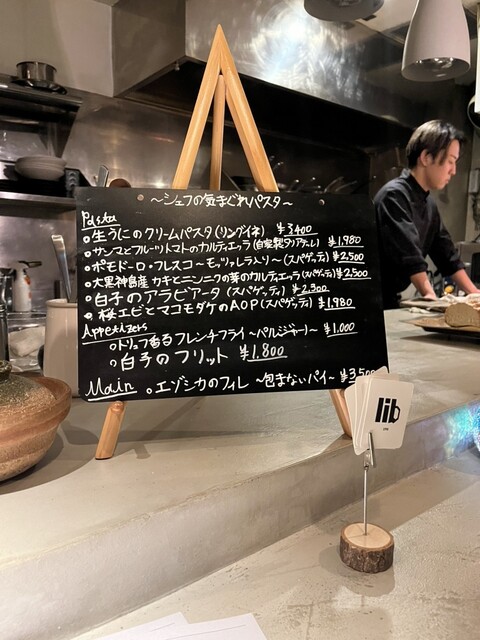 〜シェフの気まぐれパスタ〜
Pasta
。生うにのクリームパスタ(リングイネ) ¥3,400
。サンマとフルーツトマトのカルティエッラ(自家製タリアテーレ) ¥1,980
。ポモドーロ・フレスコ〜モッツァレラ入り〜(スパゲッティ) ¥2,500
。大黒神島産 カキとニンニクの芽のカルティエッラ(スパゲッティ) ¥2,500
。白子のアラビアータ(スパゲッティ) ¥2,300
。桜エビとマコモダケのAOP(スパゲッティ) ¥1,980
Appetizers
。トリュフ香るフレンチフライ〜パルジャー〜 ¥1,000
。白子のフリット ¥1,800
Main 。エゾシカのフィレ 〜包まないパイ〜 ¥3,500
lib